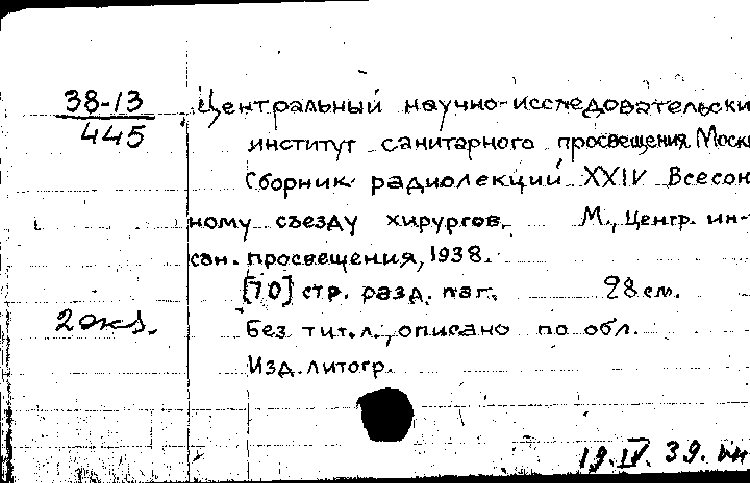 38-13
445
Центральный научно-исследовательски
институт санитарного просвещения. Москв
Сборник радиолекций XXIV Всесою
ному съезду хирургов. М., Центр. ин-
сан. просвещения, 1938.
[70] стр. разд. паг. 28 см.
2 экз.
Без тит. л., описано по обл.
Изд. литогр.
19.IV.39.